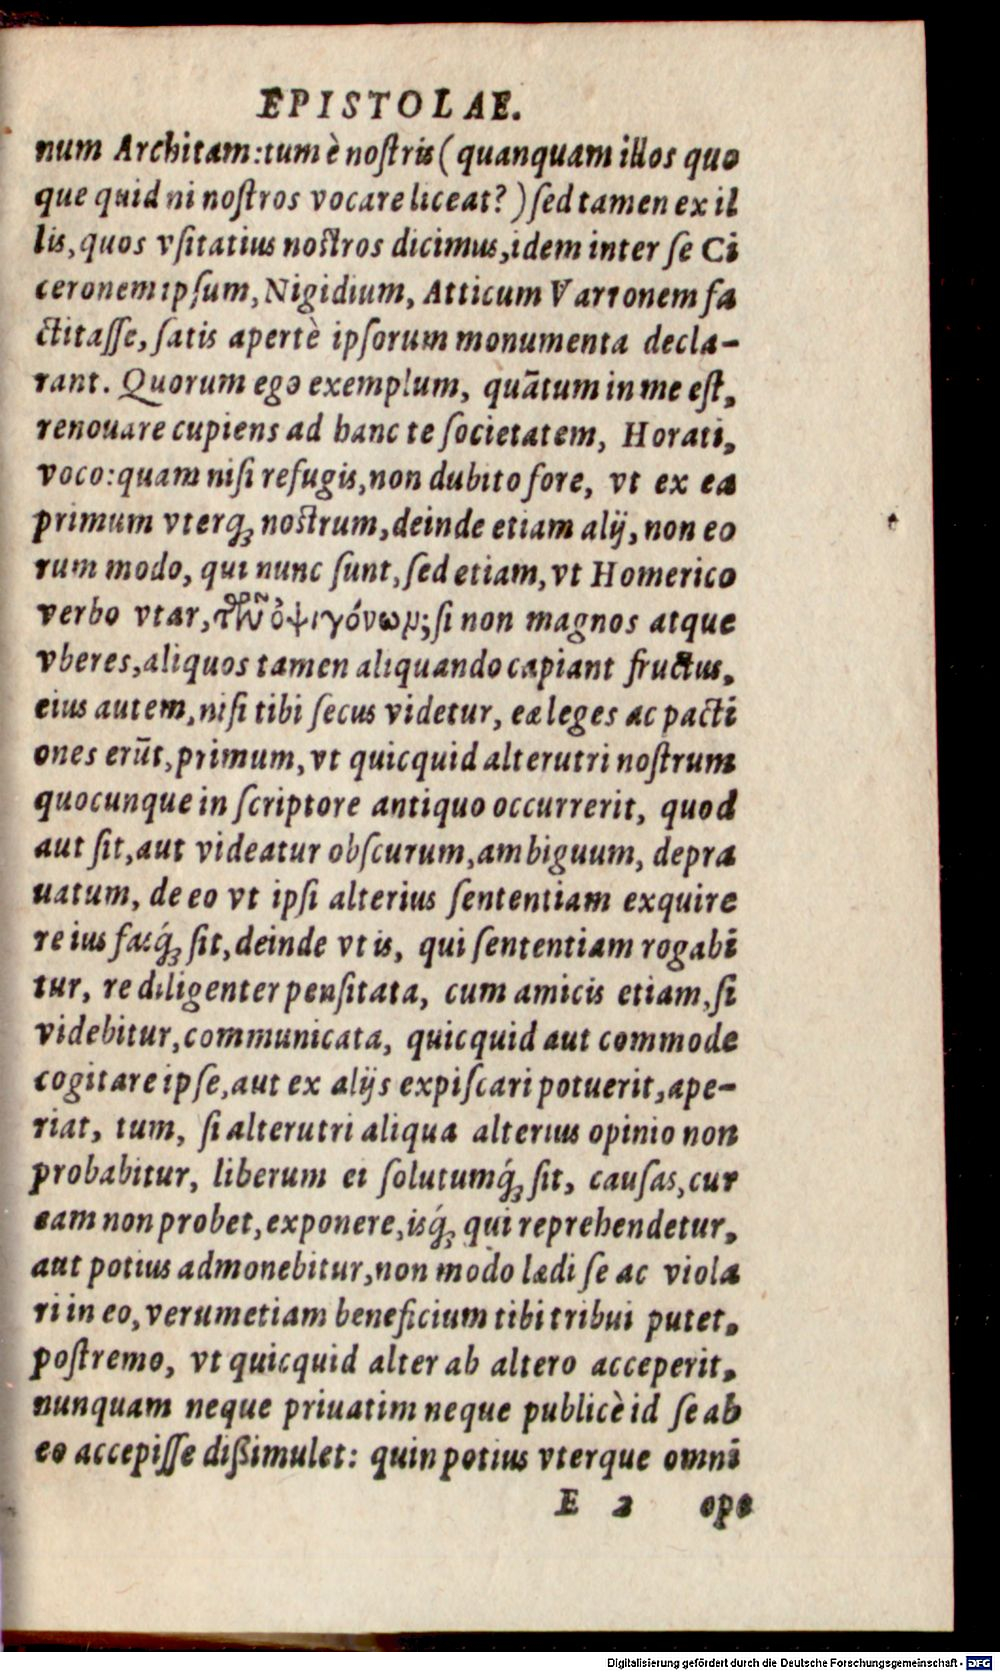 EPISTOLAE.
num Architam: tum è nostris (quanquam illos quo
que quid ni nostros vocare liceat?) sed tamen ex il
lis, quos vsitatius nostros dicimus, idem inter se Ci
ceronem ipsum, Nigidium, Atticum Varronem fa
ctitasse, satis apertè ipsorum monumenta decla-
rant. Quorum ego exemplum, quãtum in me est,
renouare cupiens ad hanc te societatem, Horati,
voco: quam nisi refugis, non dubito fore, vt ex ea
primum vterq́; nostrum, deinde etiam alij, non eo
rum modo, qui nunc sunt, sed etiam, vt Homerico
verbo vtar, τῶν ὀψιγόνων; si non magnos atque
vberes, aliquos tamen aliquando capiant fructus,
eius autem, nisi tibi secus videtur, eæ leges ac pacti
ones erũt, primum, vt quicquid alterutri nostrum
quocunque in scriptore antiquo occurrerit, quod
aut sit, aut videatur obscurum, ambiguum, depra
uatum, de eo vt ipsi alterius sententiam exquire
re ius fasq́; sit, deinde vt is, qui sententiam rogabi
tur, re diligenter pensitata, cum amicis etiam, si
videbitur, communicata, quicquid aut commode
cogitare ipse, aut ex alijs expiscari potuerit, ape-
riat, tum, si alterutri aliqua alterius opinio non
probabitur, liberum ei solutumq́; sit, causas, cur
eam non probet, exponere, isq́; qui reprehendetur,
aut potius admonebitur, non modo lædi se ac viola
ri in eo, verumetiam beneficium tibi tribui putet,
postremo, vt quicquid alter ab altero acceperit,
nunquam neque priuatim neque publicè id se ab
eo accepisse dißimulet: quin potius vterque omni
E 2 ope
Digitalisierung gefördert durch die Deutsche Forschungsgemeinschaft - DFG